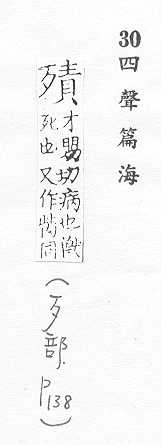 30四聲篇海
㱴
才切病也獸
死也又作同
(歹部 P138)